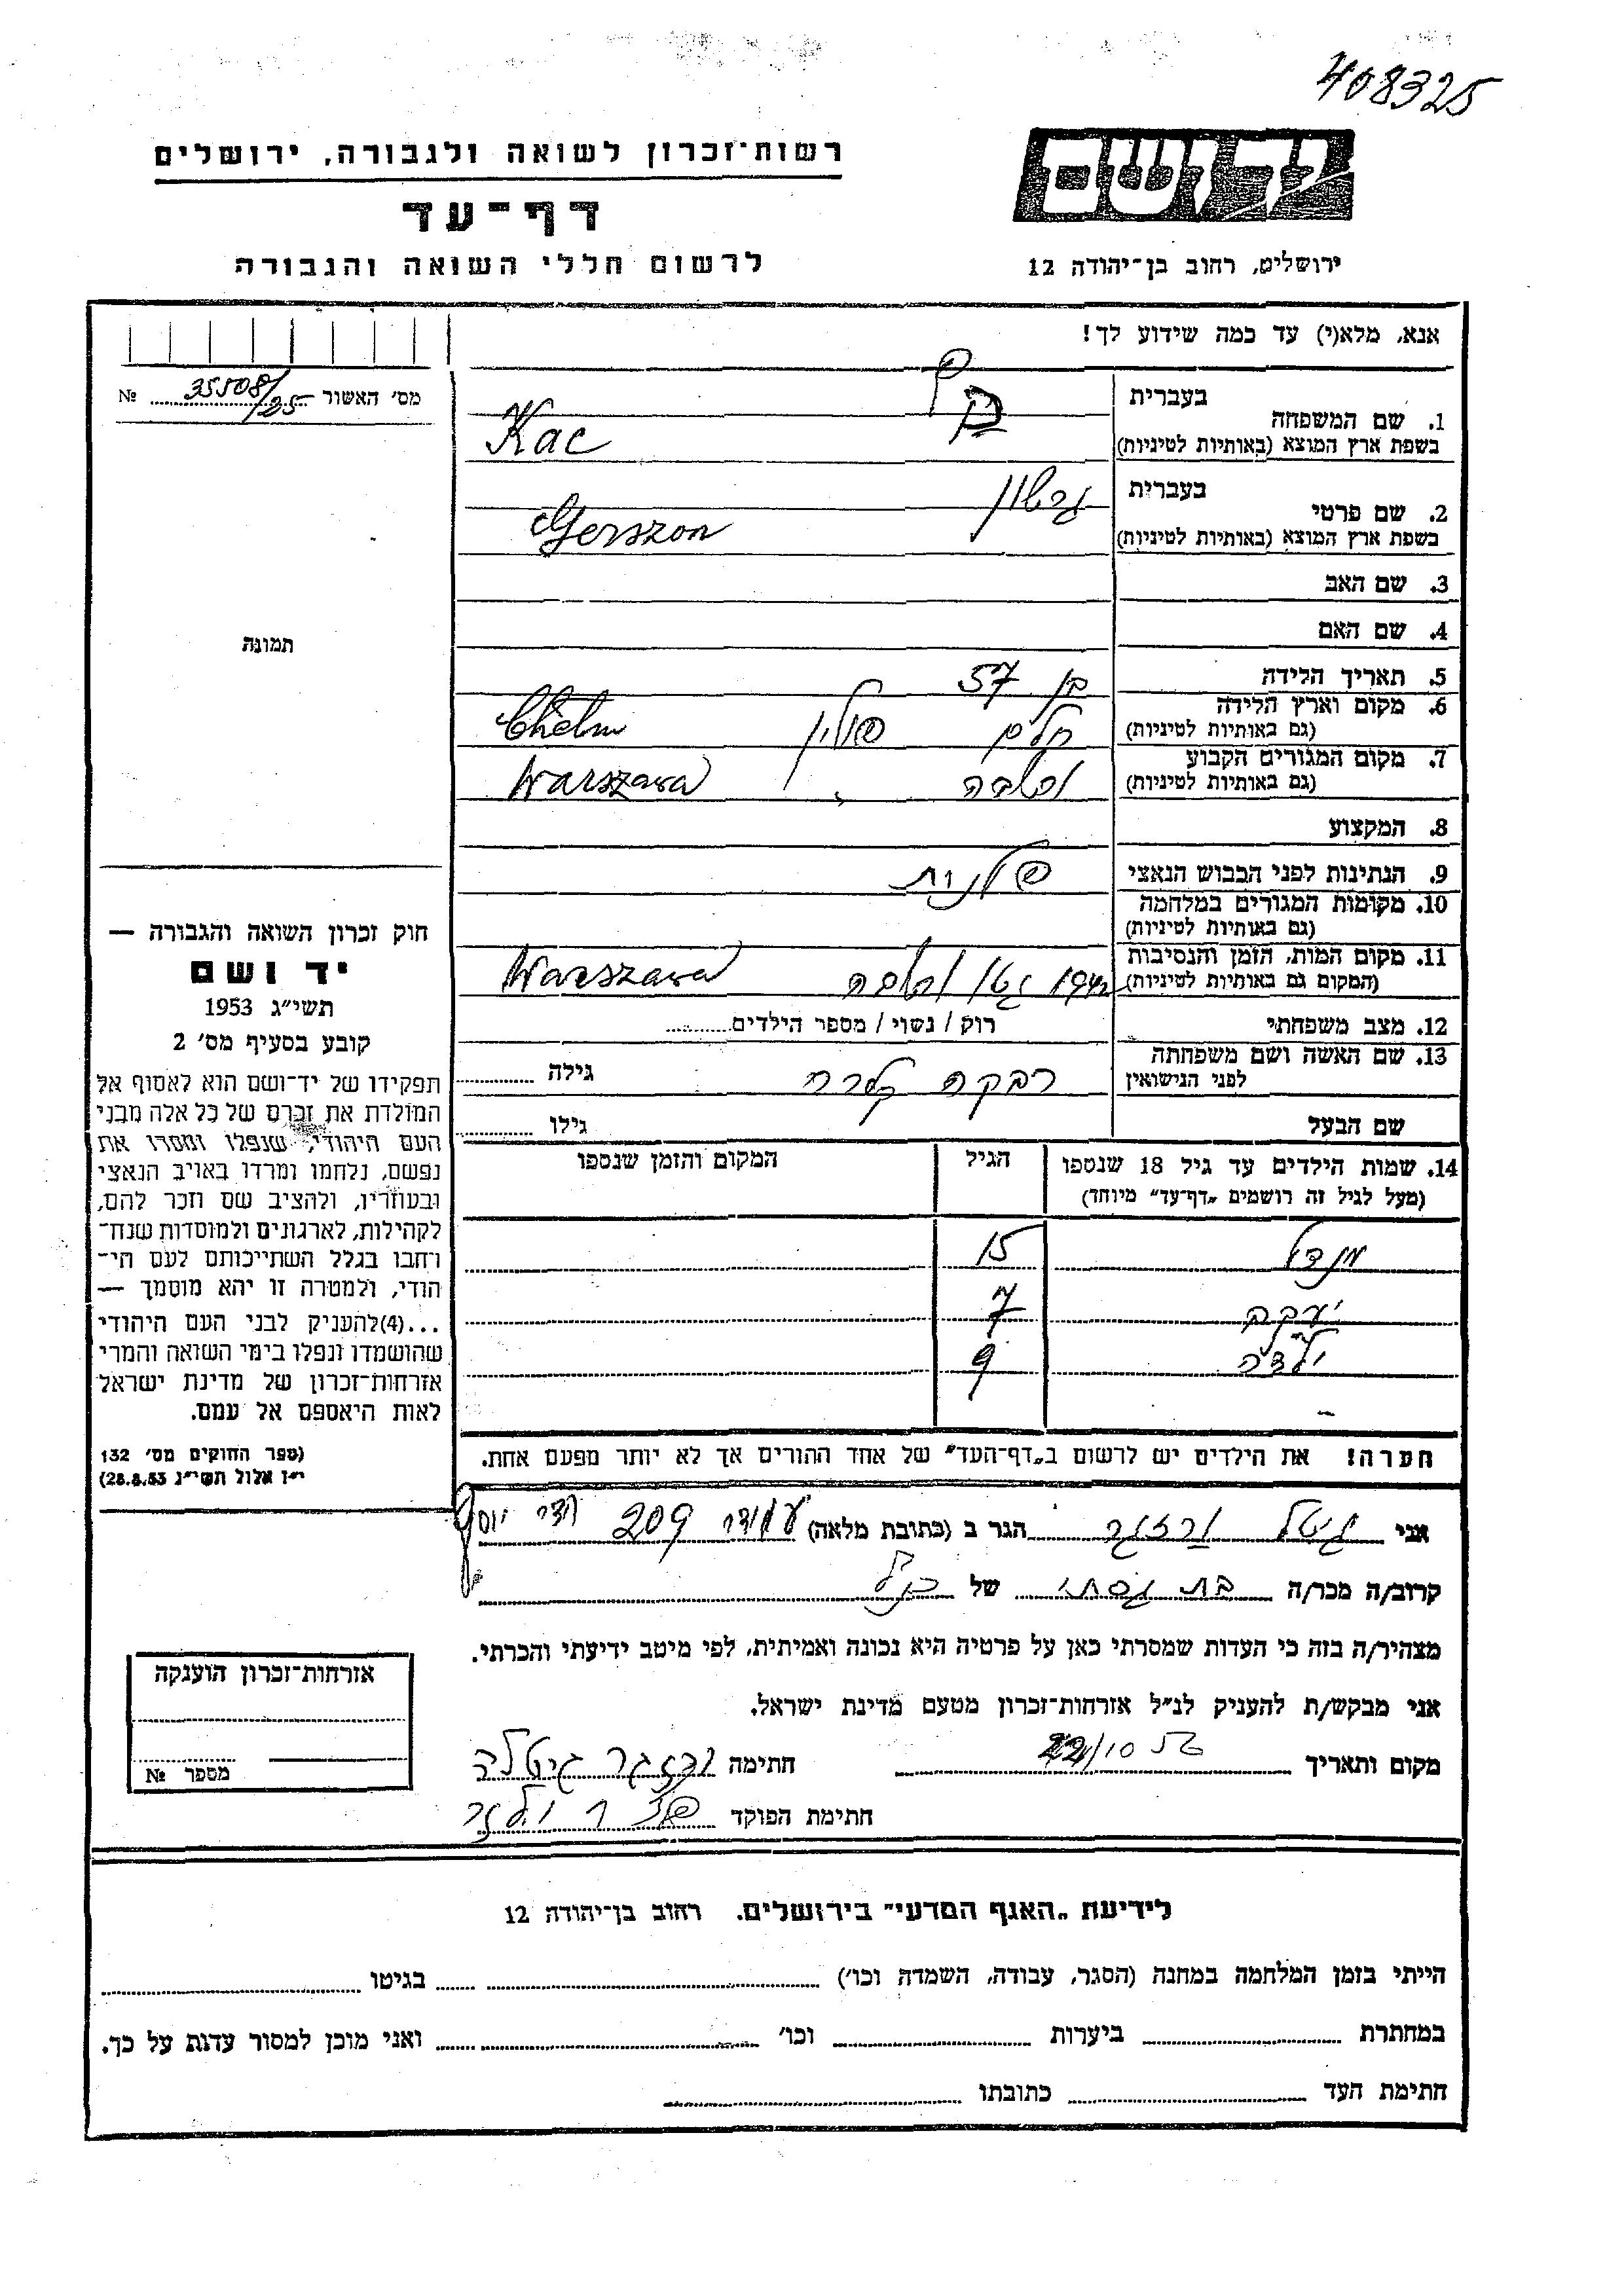 408325
רשות־זכרון לשואה ולגבורה, ירושלים
יד ושם
דף־עד
לרשום חללי השואה והגבורה
ירושלים, רחוב בן־יהודה 12
אנא, מלא(י) עד כמה שידוע לך!
מס׳ האשור 35508/25 №
בעברית
1. שם המשפחה כץ
בשפת ארץ המוצא (באותיות לטיניות) Kac
בעברית גרשון
2. שם פרטי
בשפת ארץ המוצא (באותיות לטיניות) Gerszon
3. שם האב
4. שם האם
תמונה
5. תאריך הלידה בן 57
6. מקום וארץ הלידה חלם פולין Chelm
(גם באותיות לטיניות)
7. מקום המגורים הקבוע ורשבה Warszawa
(גם באותיות לטיניות)
8. המקצוע
9. הנתינות לפני הכבוש הנאצי פולנית
10. מקומות המגורים במלחמה
(גם באותיות לטיניות)
11. מקום המות, הזמן והנסיבות גטו ורשבה Warszawa
(המקום גם באותיות לטיניות)
12. מצב משפחתי רוק / נשוי / מספר הילדים
13. שם האשה ושם משפחתה רבקה גילה
לפני הנישואין
שם הבעל גילו
14. שמות הילדים עד גיל 18 שנספו הגיל המקום והזמן שנספו
(מעל לגיל זה רושמים „דף־עד״ מיוחד)
מנדל 15
יעקב 7
ילדה 9
הערה! את הילדים יש לרשום ב„דף־העד״ של אחד ההורים אך לא יותר מפעם אחת.
חוק זכרון השואה והגבורה —
יד ושם
תשי״ג 1953
קובע בסעיף מס׳ 2
תפקידו של יד־ושם הוא לאסוף אל
המולדת את זכרם של כל אלה מבני
העם היהודי, שנפלו ומסרו את
נפשם, נלחמו ומרדו באויב הנאצי
ובעוזריו, ולהציב שם וזכר להם,
לקהילות, לארגונים ולמוסדות שנח־
רבו בגלל השתייכותם לעם הי־
הודי, ולמטרה זו יהא מוסמך —
...(4)להעניק לבני העם היהודי
שהושמדו ונפלו בימי השואה והמרי
אזרחות־זכרון של מדינת ישראל
לאות היאספם אל עמם.
(ספר החוקים מס׳ 132
י״ז אלול תשי״ג 28.8.53)
אני גיטל ורזגר הגר ב (כתובת מלאה) עמידר 209 הדר יוסף
קרוב/ה מכר/ה בת גיסתו של כנ״ל
מצהיר/ה בזה כי העדות שמסרתי כאן על פרטיה היא נכונה ואמיתית, לפי מיטב ידיעתי והכרתי.
אני מבקש/ת להעניק לנ״ל אזרחות־זכרון מטעם מדינת ישראל.
מקום ותאריך 22/10 חתימה ורזגר גיטלה
חתימת הפוקד
אזרחות־זכרון הוענקה
מספר №
לידיעת „האגף המדעי״ בירושלים. רחוב בן־יהודה 12
הייתי בזמן המלחמה במחנה (הסגר, עבודה, השמדה וכו׳) בגיטו
במחתרת ביערות וכו׳ ואני מוכן למסור עדות על כך.
חתימת העד כתובתו